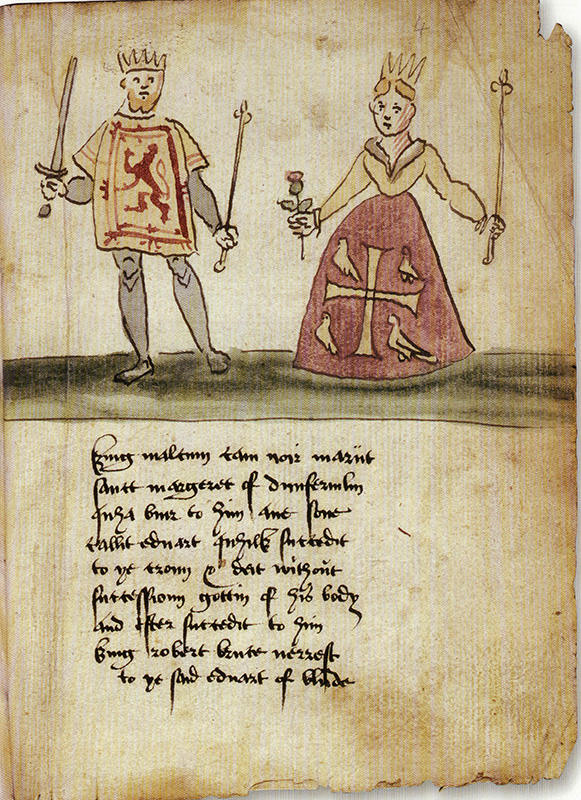 4
king malcum cam noir mariit
sanct margeret of dunfermlin
quha buir to him ane sone
callit eduart quhilk succedit
to ye croun & deit without
successioun gottin of his body
and efter succedit to him
king robert bruce nerrest
to ye said eduart of blude